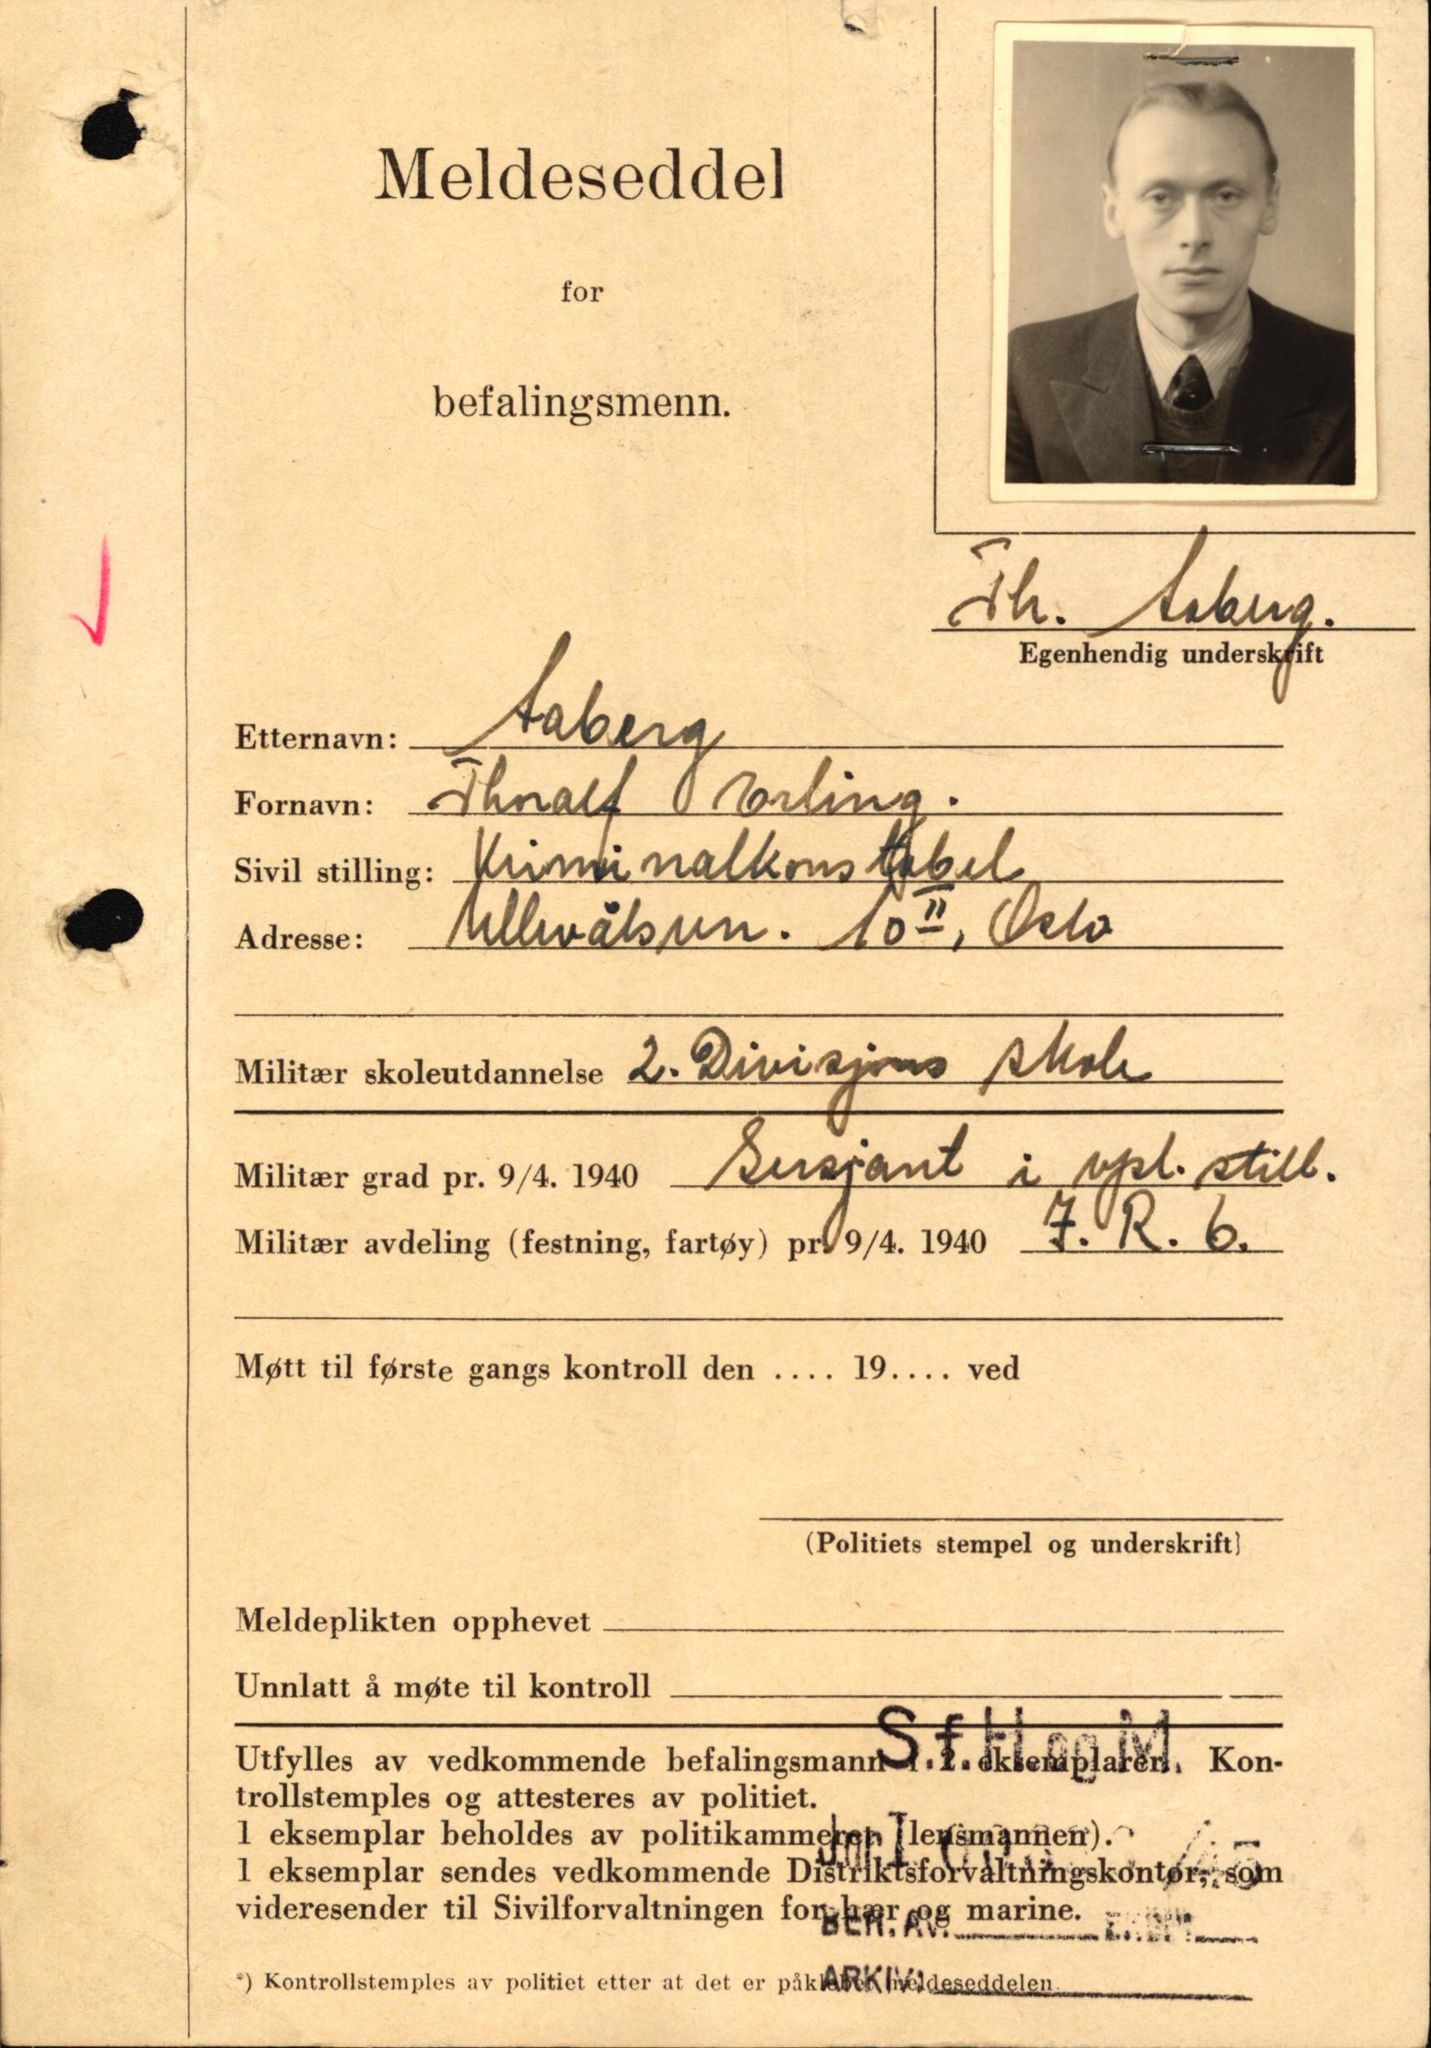 Meldeseddel
for
befalingsmenn.
Th. Aaberg.
Egenhendig underskrift
Etternavn: Aaberg
Fornavn: Thoralf Erling.
Sivil stilling: Kriminalkonstabel
Adresse: Ullevålsvn. 10 II, Oslo
Militær skoleutdannelse 2. Divisjons skole
Militær grad pr. 9/4. 1940 Sersjant i vpl. still.
Militær avdeling (festning, fartøy) pr. 9/4. 1940 I. R. 6.
Møtt til første gangs kontroll den .... 19.... ved
(Politiets stempel og underskrift)
Meldeplikten opphevet
Unnlatt å møte til kontroll
S.f. H og M.
Utfylles av vedkommende befalingsmann i 2 eksemplarer. Kon-
trollstemples og attesteres av politiet.
1 eksemplar beholdes av politikammeret (lensmannen).
1 eksemplar sendes vedkommende Distriktsforvaltningskontor, som
videresender til Sivilforvaltningen for hær og marine.
BEH. AV.
*) Kontrollstemples av politiet etter at det er påklebet meldeseddelen
ARKIV: